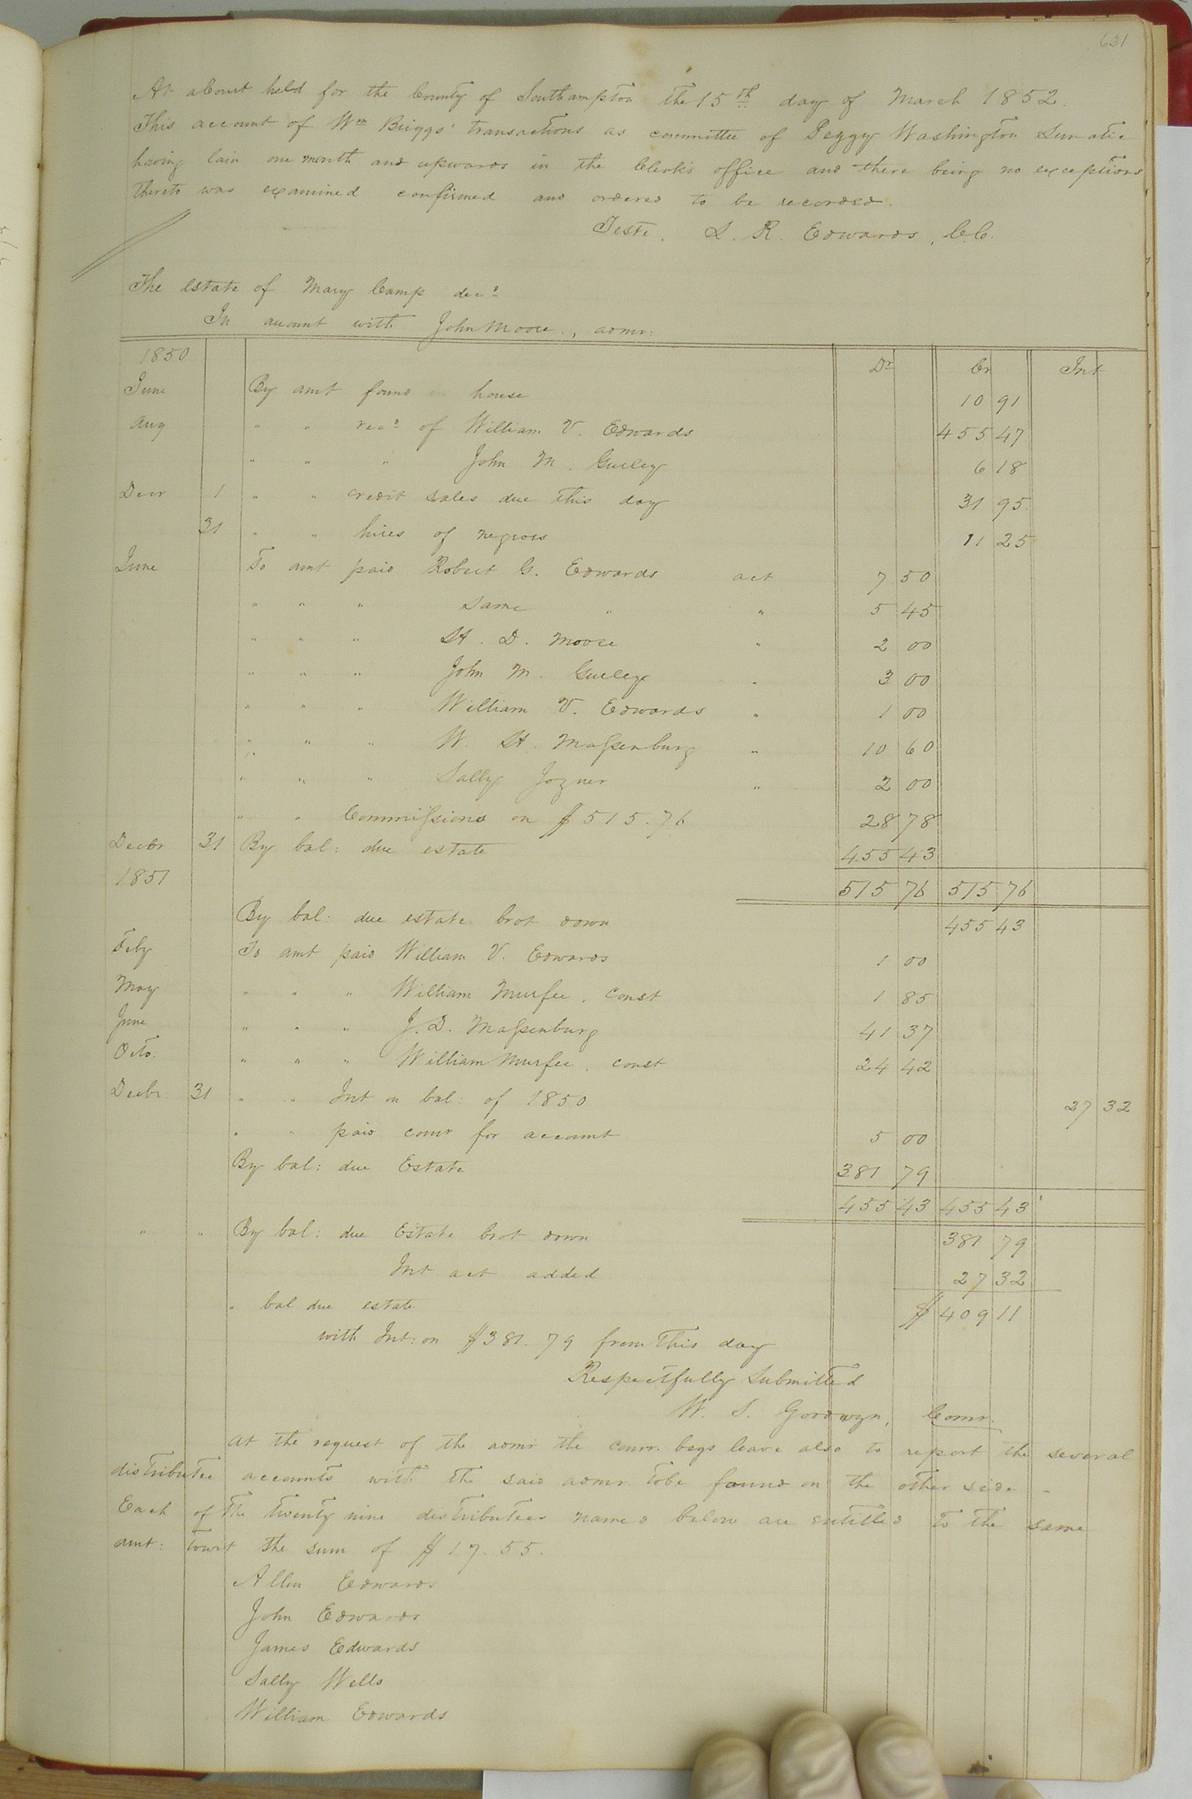 621
At a Court held for the County of Southampton the 15th day of March 1852.
This account of Wm Briggs' transactions as committee of Peggy Washington Lunatic
having lain one month and upwards in the Clerk's office and there being no exceptions
thereto was examined confirmed and ordered to be recorded.
Teste, L. R. Edwards, C.C.
The estate of Mary Camp decd
In account with John Moore, admr.
1850 Dr Cr Int
June By amt found in house 10 91
Aug " " recd of William V. Edwards 455 47
" " " John M. Gurley 6 18
Decr 1 " " credit sales due this day 31 95
31 " " hires of negroes 11 25
June To amt paid Robert G. Edwards act 7 50
" " " same " " 5 45
" " " H. D. Moore " 2 00
" " " John M. Gurley " 3 00
" " " William V. Edwards " 1 00
" " " W. H. Massenburg " 10 60
" " " Sally Joyner " 2 00
" " Commissions on $515.76 28 78
Decbr 31 By bal: due estate 455 43
1851 515 76 515 76
By bal: due estate brot down 455 43
Feby To amt paid William V. Edwards 1 00
May " " " William Murfee, const 1 85
June " " " J. D. Massenburg 41 37
Octo. " " " William Murfee, const 24 42
Decbr 31 " " Int on bal: of 1850 27 32
" " paid comr for account 5 00
By bal: due Estate 381 79
455 43 455 43
" " By bal: due Estate brot down 381 79
Int act added 27 32
" bal due estate $ 409 11
with Int: on $381.79 from this day
Respectfully Submitted
W. S. Goodwyn, Comr.
At the request of the admr the comr. begs leave also to report the several
distributee accounts with the said admr. to be found on the other side -
Each of the twenty nine distributees named below are entitled to the same
amt: towit the sum of $17.55.
Allen Edwards
John Edwards
James Edwards
Sally Wells
William Edwards